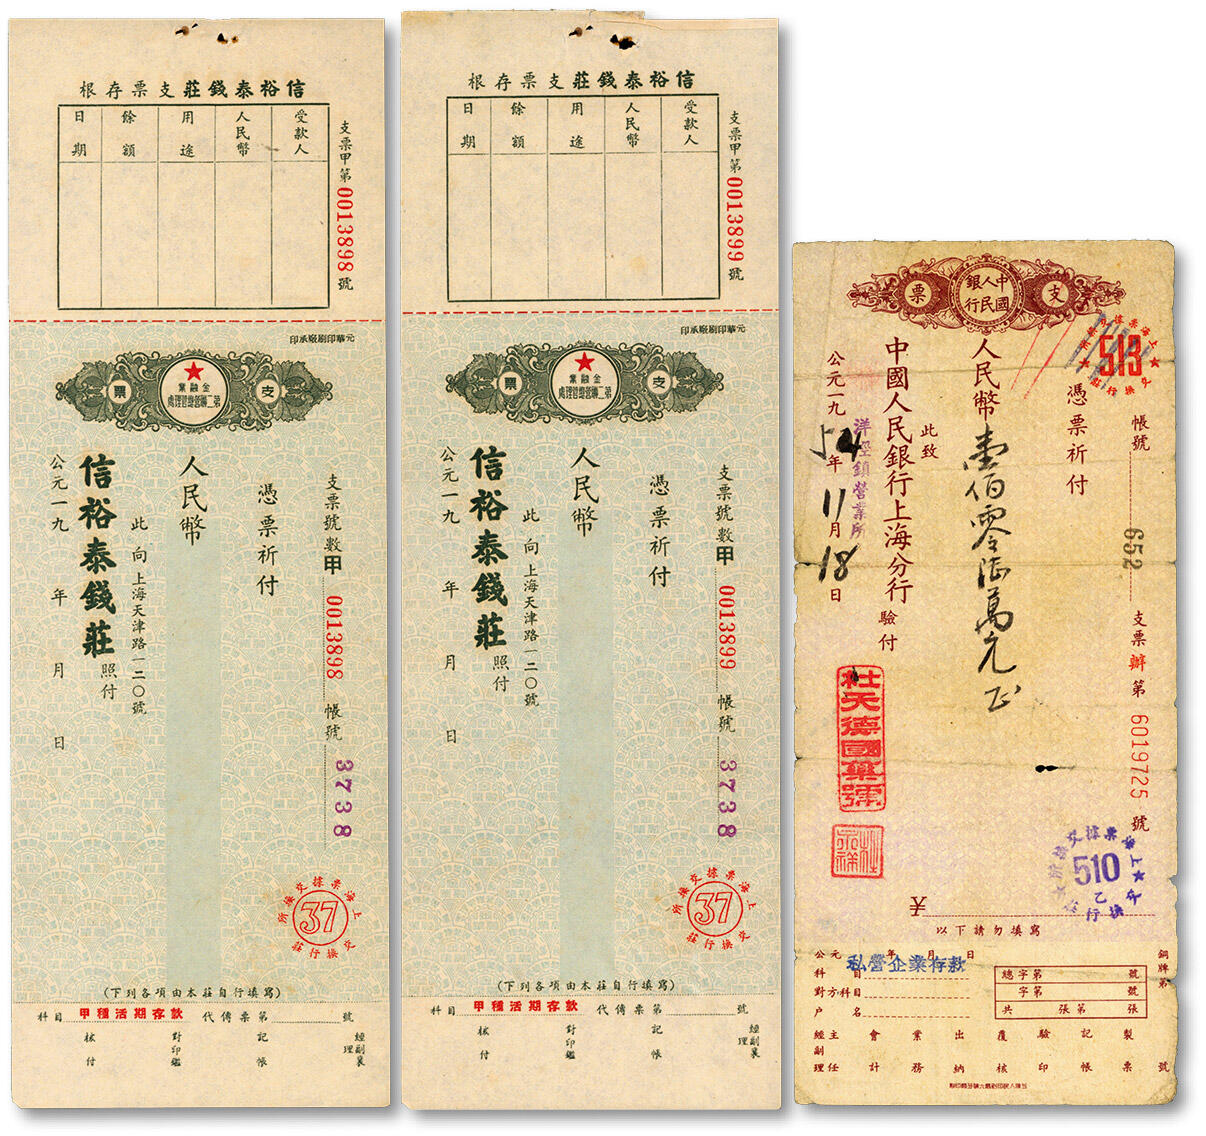 信裕泰錢莊支票存根
受款人
人民幣
用途
餘額
日期
支票甲第0013898號
元華印刷廠承印
支票
金融業
第二聯營總管理處
支票號數甲0013898 帳號3738
憑票祈付
人民幣
此向上海天津路一二〇號
信裕泰錢莊照付
公元一九 年 月 日
上海票據交換所
37
交換行莊
(下列各項由本莊自行填寫)
科目 甲種活期存款 代傳票第 號
核付
對印鑑
記帳
經副襄理
信裕泰錢莊支票存根
受款人
人民幣
用途
餘額
日期
支票甲第0013899號
元華印刷廠承印
支票
金融業
第二聯營總管理處
支票號數甲0013899 帳號3738
憑票祈付
人民幣
此向上海天津路一二〇號
信裕泰錢莊照付
公元一九 年 月 日
上海票據交換所
37
交換行莊
(下列各項由本莊自行填寫)
科目 甲種活期存款 代傳票第 號
核付
對印鑑
記帳
經副襄理
支票
中國人民銀行
上海票據交換所
513
交換行莊
帳號 652 支票辦第6019725號
憑票祈付
人民幣壹佰零陸萬元正
此致
中國人民銀行上海分行驗付
洋涇鎮營業所
公元一九54年11月18日
杜天德國藥號
上海票據交換所
510
乙
¥
以下請勿填寫
公元 年 月 日
私營企業存款
科目
對方科目
戶名
總字第 號
字第 號
共 張第 張
銅牌第 號
製票
記帳
驗印
覆核
出納
業務
會計
主任
經副理